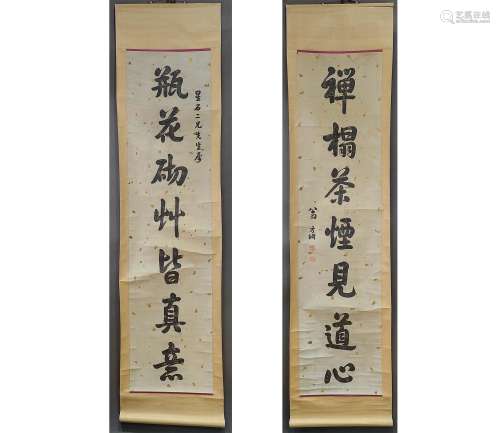 星石二兄先生屬
瓶花砌艸皆真意
禪榻茶煙見道心
翁方綱
艺狐在线